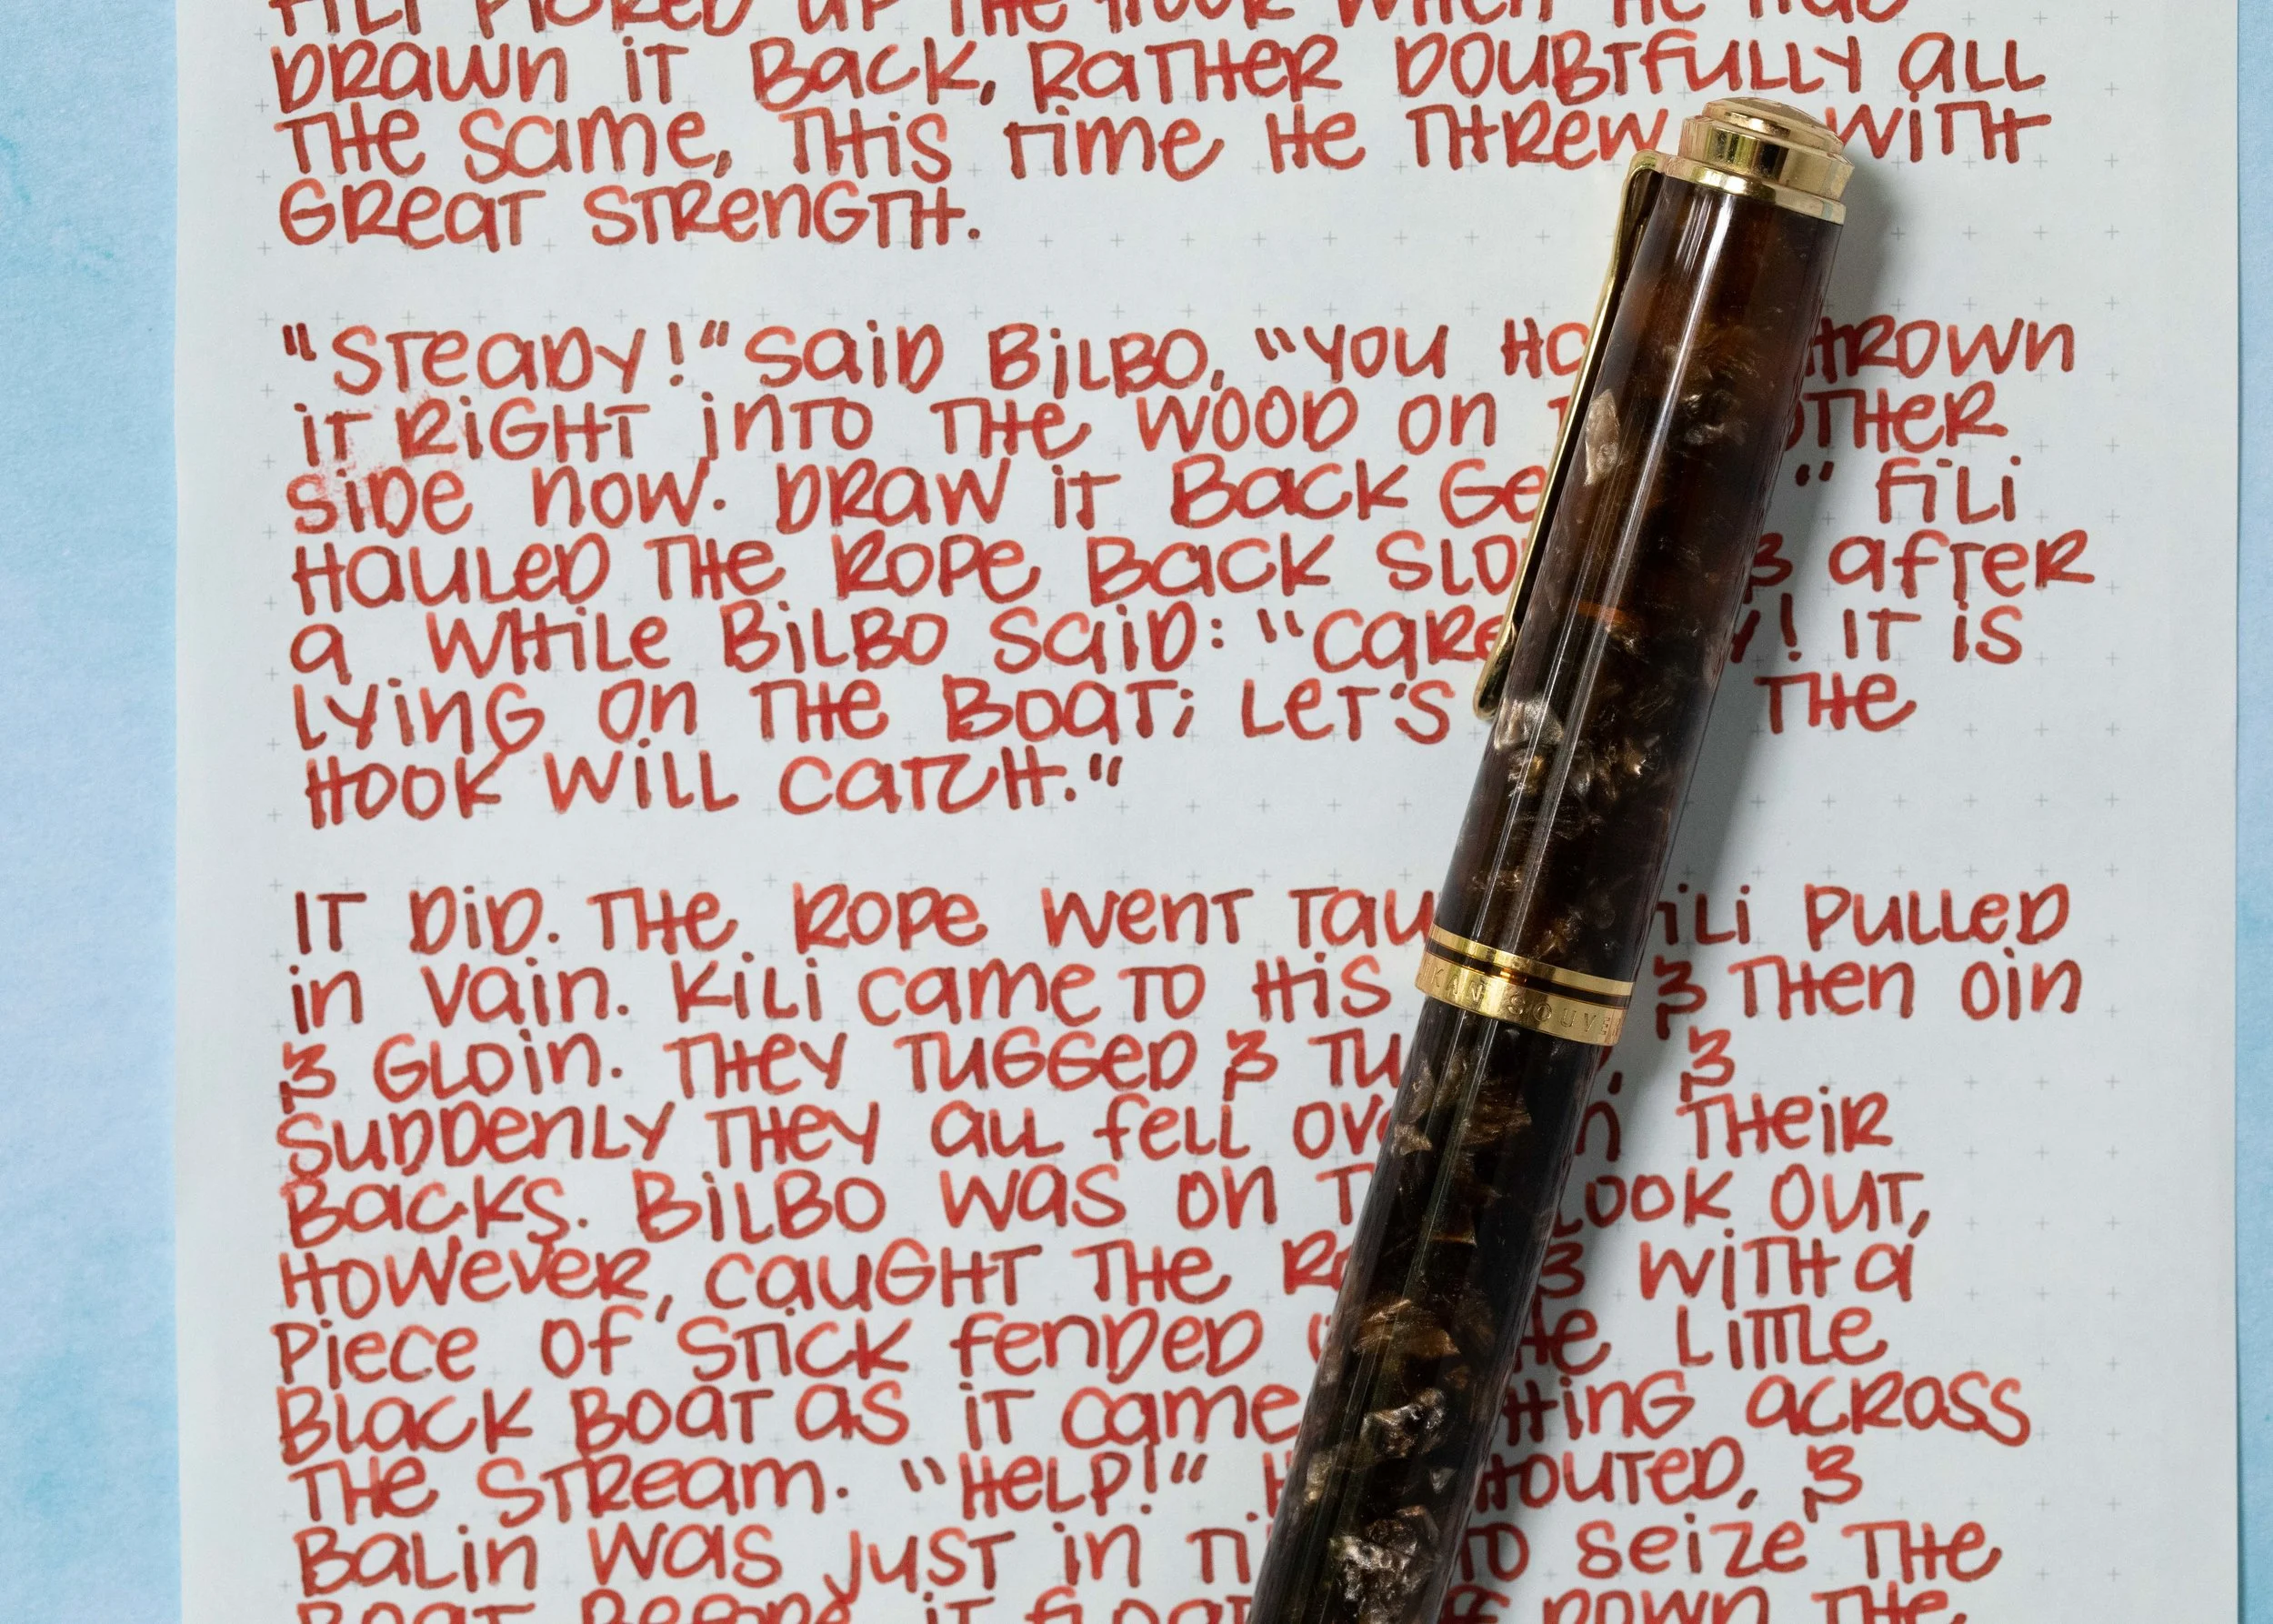 Fili picked up the hook when he had
drawn it back, rather doubtfully all
the same, this time he threw with
great strength.
"Steady!" said Bilbo, "you thrown
it right into the wood on other
side now. Draw it back " Fili
hauled the rope back & after
a while Bilbo said: " ! It is
lying on the boat; let's the
hook will catch."
It did. The rope went pulled
in vain. Kili came to his & then Oin
& Gloin. They tugged & , &
suddenly they all fell their
backs. Bilbo was on look out,
however, caught the & with a
piece of stick fended little
black boat as it came across
the stream. "Help!" , &
Balin was just in to seize the
boat before it down the
KAN SOUVE